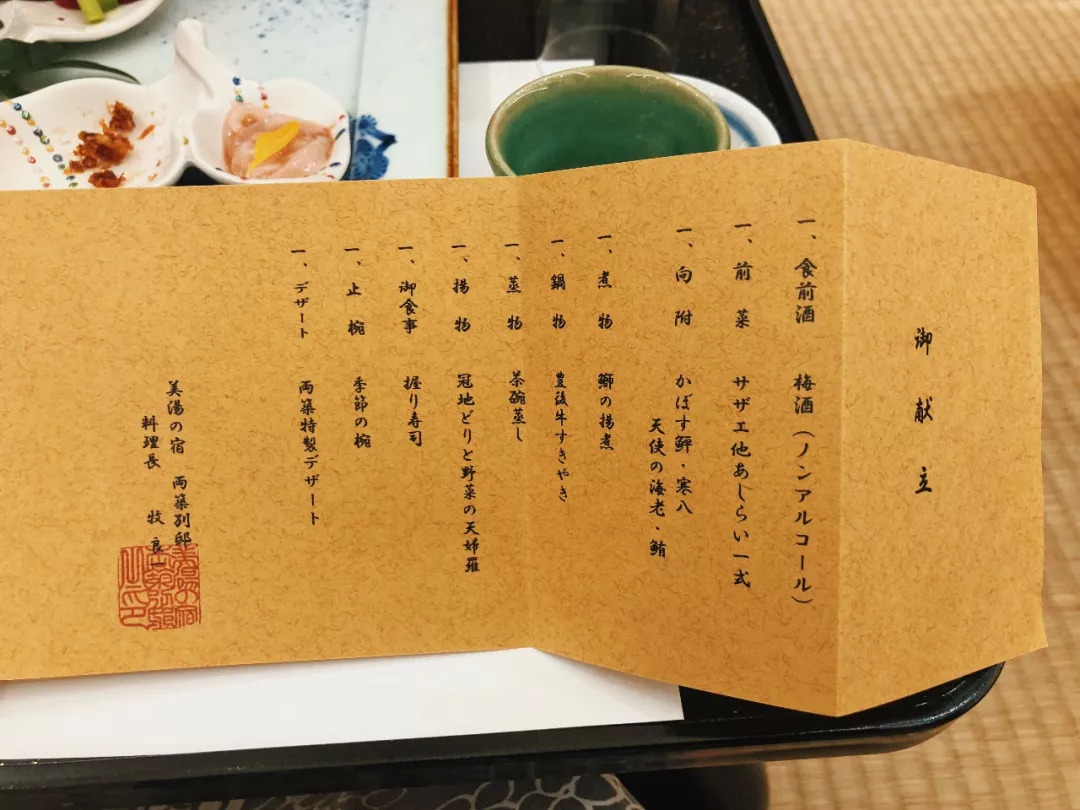 御献立
一、食前酒 梅酒(ノンアルコール)
一、前菜 サザエ他あしらい一式
一、向附 かぼす鮃・寒八
天使の海老・鮪
一、煮物 鰤の揚煮
一、鍋物 豊後牛すきやき
一、蒸物 茶碗蒸し
一、揚物 冠地どりと野菜の天婦羅
一、御食事 握り寿司
一、止椀 季節の椀
一、デザート 両築特製デザート
美湯の宿 両築別邸
料理長 牧良一